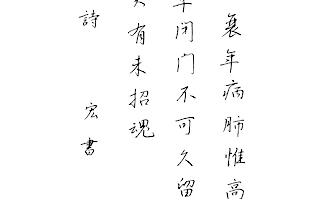 衰年病肺惟高
闭门不可久留
有未招魂
詩 宏書